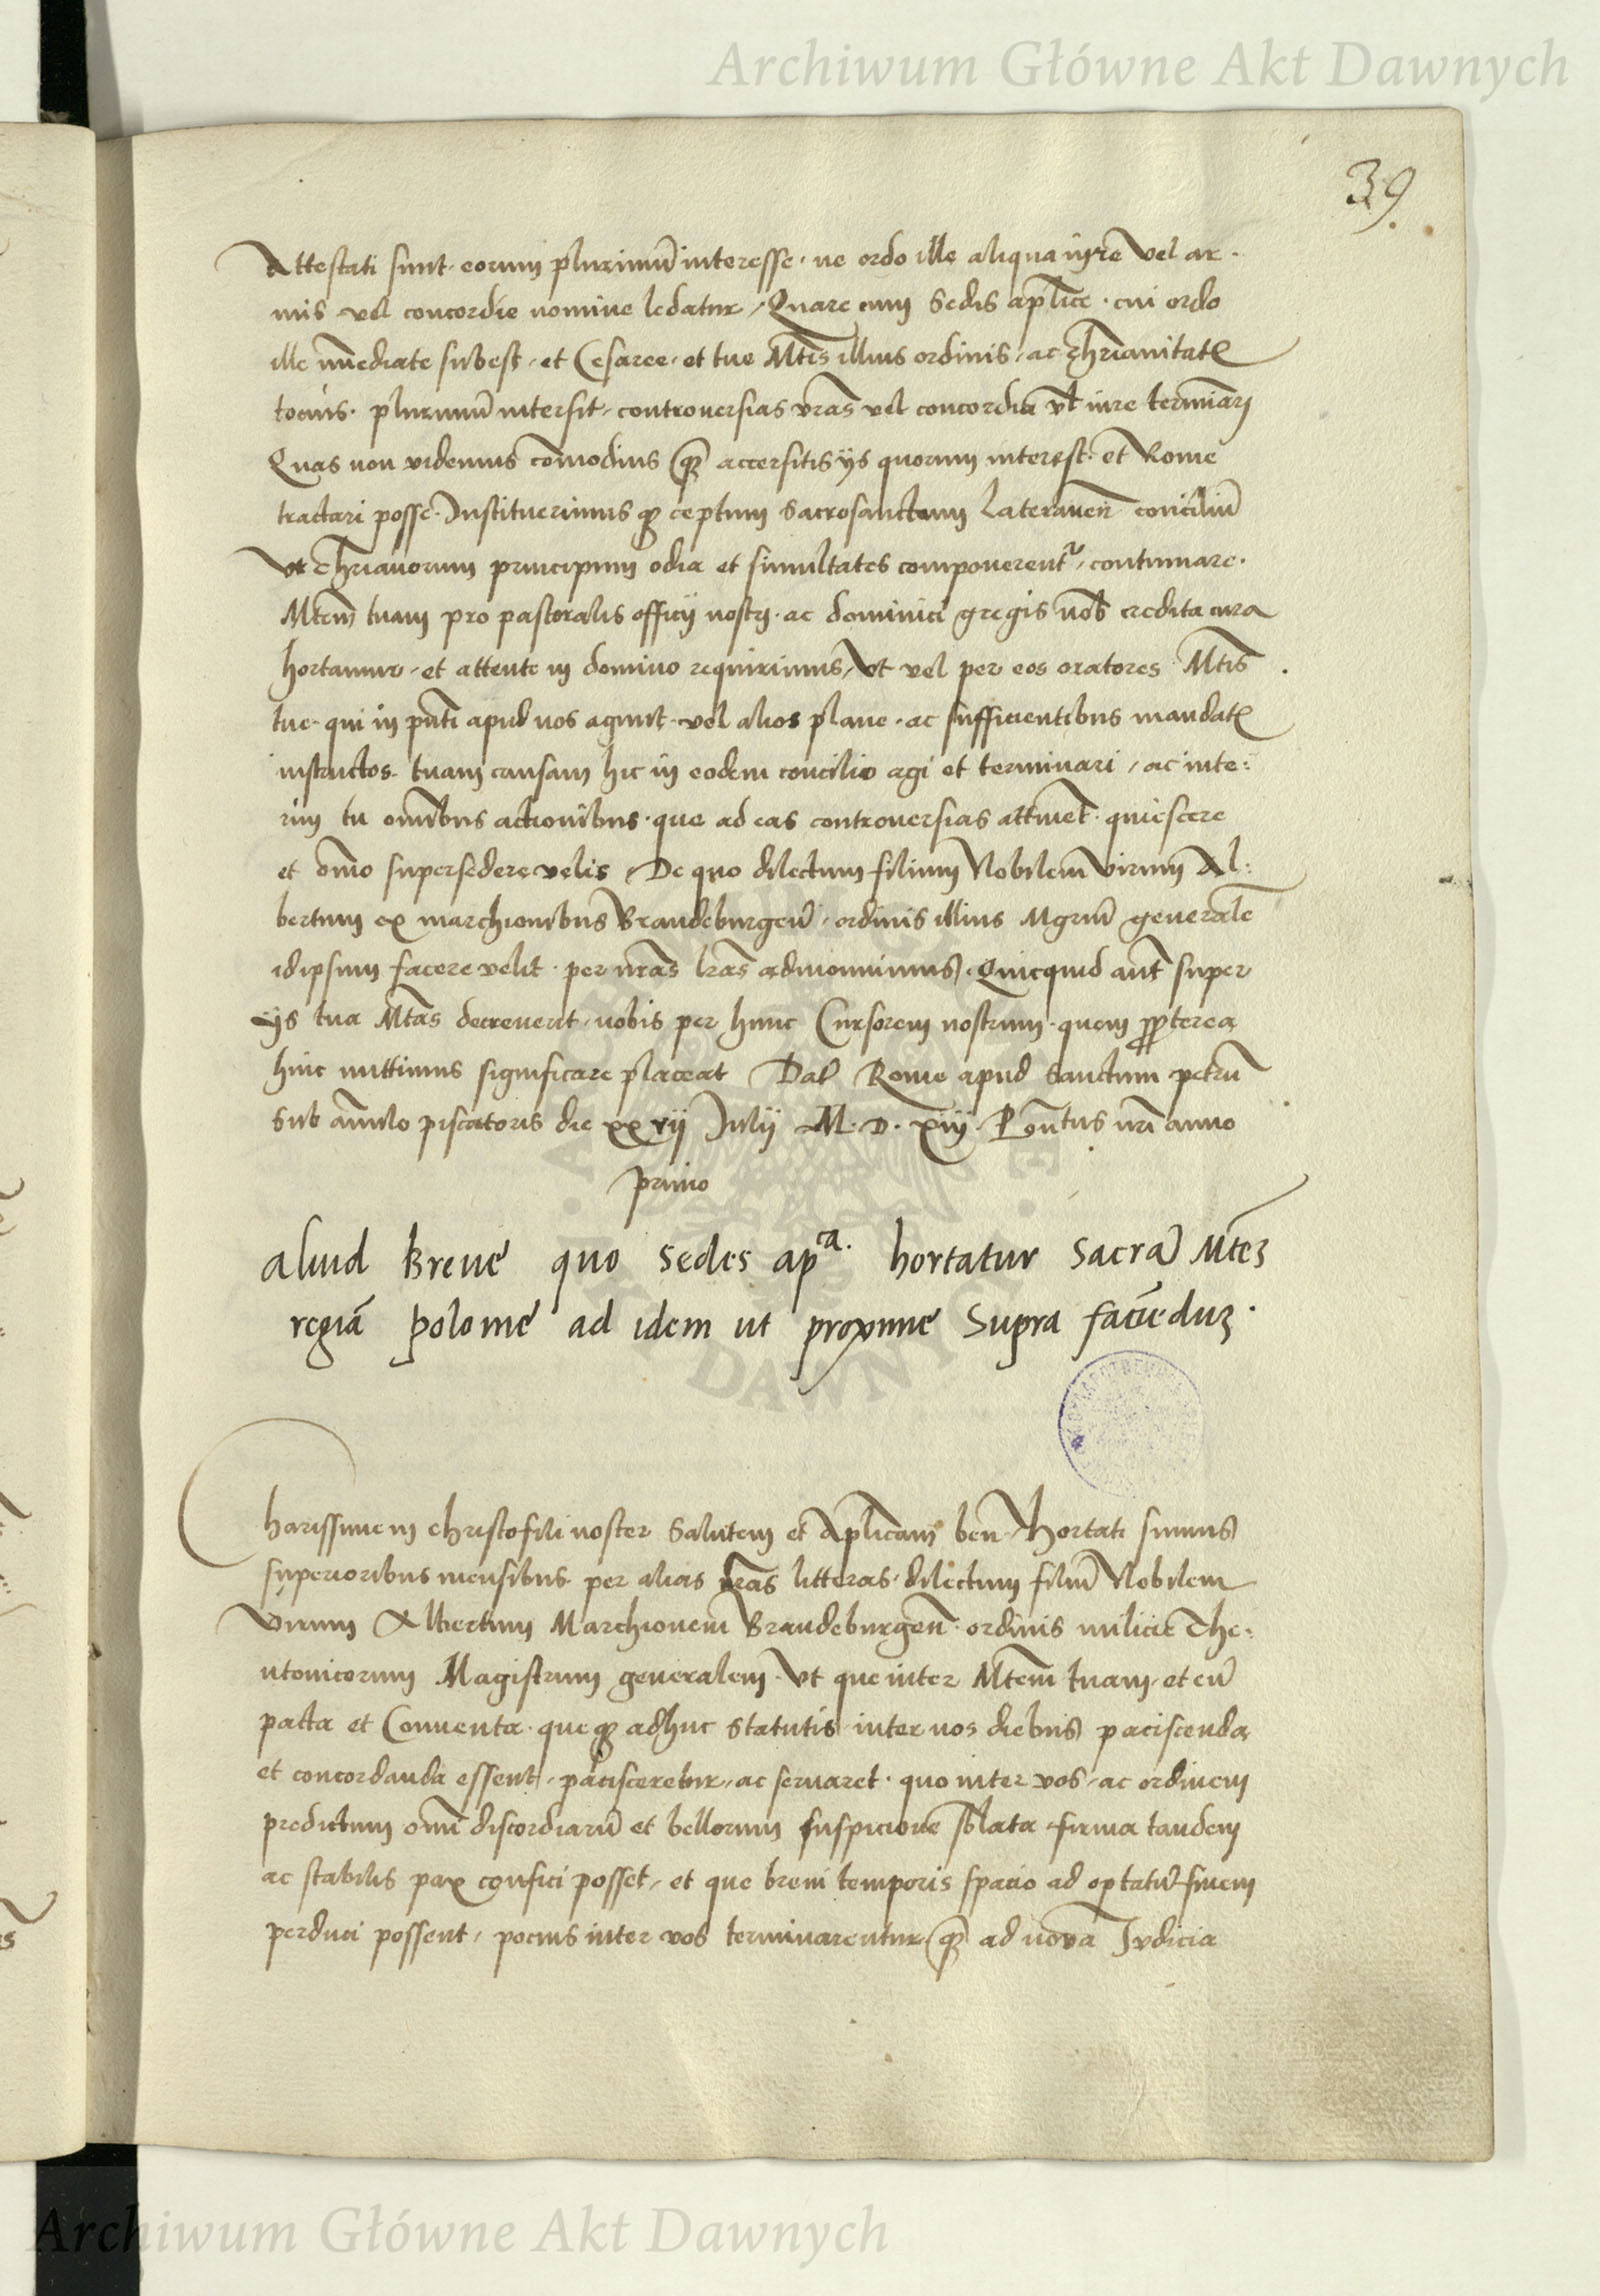 Archiwum Główne Akt Dawnych
39.
Attestati sunt · eorum plurimū interesse · ne ordo ille aliqua iniurē vel ar ·
mis vel concordie nomine ledatur / Quare cum Sedis apl̄ice · cui ordo
ille im̄ediate subest · et Cesaree · et tue Mt̄is illius ordinis / ac chr̄ianitatꝭ
tocius · plurimū intersit / controuersias vr̄as vel concordia vl̄ iure termināri
Quas non videmus com̄odius qꝫ accersitis ijs quorum interest · et Rome
tractari posse · Instituerimus qꝫ ceptum Sacrosanctum Lateraneñ conciliū
vt chr̄ianorum principum odia et simultates componerent᷑ / continuare ·
Mt̄em tuam pro pastoralis officij nostri · ac dominici gregis nob̄ credita cura
hortamur · et attente in domino requirimus / Vt vel per eos oratores Mt̄is
tue · qui in pn̄ti apud nos agunt · vel alios plane · ac sufficientibus mandatꝭ
instructos · tuam causam hic in eodem concilio agi et terminari / ac inte:
rim tu om̄ibus actionibus · que ad eas controuersias attinēt · quiescere
et om̄o supersedere velis / De quo dilectum filium Nobilem virum Al:
bertum ex marchionibus Brandeburgeñ · ordinis illius Mgr̄um generalē
idipsum facere velit · per nr̄as lr̄as admonuimus / Quicquid aūt super
ijs tua Mt̄as decreuerit · nobis per hunc Cursorem nostrum · quem ꝓpterea
hinc mittimus significare placeat Dat̄ Rome apud Sanctum petrū
sub añulo piscatoris die xxvij Julij M · D · xiij · Pon̄tus nr̄i anno
primo
aliud Breue quo Sedes apᶜᵃ· hortatur Sacrā Mt̄eꝫ
regiā polonie ad idem ut proxime Supra faciēduꝫ ·
Charissime in christo fili noster Salutem et Apl̄icam beñ · Hortati sumus
superioribus mensibus · per alias nr̄as litteras · dilectum filiū Nobilem
virum Albertum Marchionem Brandeburgeñ · ordinis milicie The:
utonicorum Magistrum generalem · Vt que inter Mt̄em tuam · et eū
pacta et Conuenta · que qꝫ adhuc statutis inter vos diebus paciscenda
et concordanda essent / pacisceretur / ac seruaret · quo inter vos / ac ordinem
predictum om̄i discordiarū et bellorum suspicione sb̄lata firma tandem
ac stabilis pax confici posset / et que breui temporis spacio ad optatū finem
perduci possent / pocius inter vos terminarentur qꝫ ad noua Judicia
Archiwum Główne Akt Dawnych